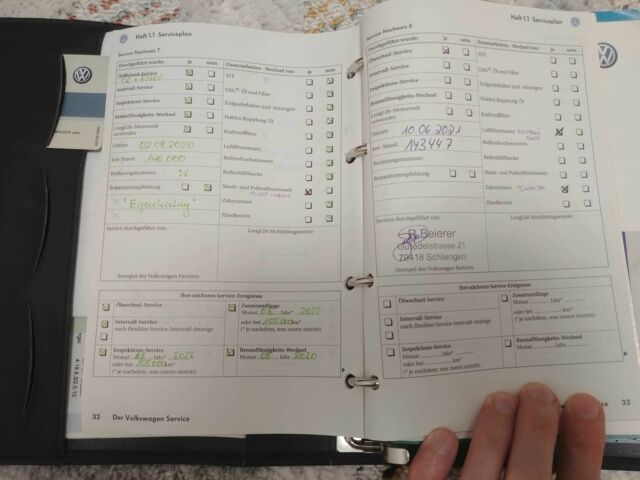 Heft 1.1 Serviceplan
Service-Nachweis 7
Durchgeführt wurde: Ja nein
Ölwechsel-Service
Intervall-Service
Inspektions-Service
Bremsflüssigkeits-Wechsel
LongLife-Motorenöl
verwendet
Datum: 02.08.2020
km-Stand: 140.000
Rechnungsnummer:
Reparaturempfehlung
"Eigenleistung"
Service durchgeführt von:
Stempel des Volkswagen Partners
Zusatzarbeiten - Wechsel von: ja nein
ATF
DSG®, Öl und Filter
Erdgasbehälter und -leitungen
Haldex-Kupplung, Öl
Kraftstofffilter
Luftfiltereinsatz
Reifendrucksensoren
Reifenfüllflasche
Staub- und Pollenfiltereinsatz
Zahnriemen
Zündkerzen
LongLife Mobilitätsgarantie:
Ihre nächsten Service-Ereignisse
Ölwechsel-Service
Intervall-Service
nach flexibler Service-Intervall-Anzeige
Inspektions-Service
Monat 08 Jahr* 2022
oder bei 155000 km*
(* je nachdem, was zuerst eintritt)
Zusatzumfänge
Monat 08 Jahr* 2022
oder bei 155000 km*
(* je nachdem, was zuerst eintritt)
Bremsflüssigkeits-Wechsel
Monat 08 Jahr 2020
32 Der Volkswagen Service
Heft 1.1 Serviceplan
Service-Nachweis 8
Durchgeführt wurde: Ja nein
Ölwechsel-Service
Intervall-Service
Inspektions-Service
Bremsflüssigkeits-Wechsel
LongLife-Motorenöl
verwendet
Datum: 10.06.2021
km-Stand: 143447
Rechnungsnummer:
Reparaturempfehlung
Service durchgeführt von:
B. Beierer
Gutedelstrasse 21
79418 Schliengen
Stempel des Volkswagen Partners
Zusatzarbeiten - Wechsel von: ja nein
ATF
DSG®, Öl und Filter
Erdgasbehälter und -leitungen
Haldex-Kupplung, Öl
Kraftstofffilter
Luftfiltereinsatz
Reifendrucksensoren
Reifenfüllflasche
Staub- und Pollenfiltereinsatz
Zahnriemen
Zündkerzen
LongLife Mobilitätsgarantie:
Ihre nächsten Service-Ereignisse
Ölwechsel-Service
Intervall-Service
nach flexibler Service-Intervall-Anzeige
Inspektions-Service
Monat Jahr*
oder bei km*
(* je nachdem, was zuerst eintritt)
Zusatzumfänge
Monat Jahr*
oder bei km*
(* je nachdem, was zuerst eintritt)
Bremsflüssigkeits-Wechsel
Monat Jahr
33